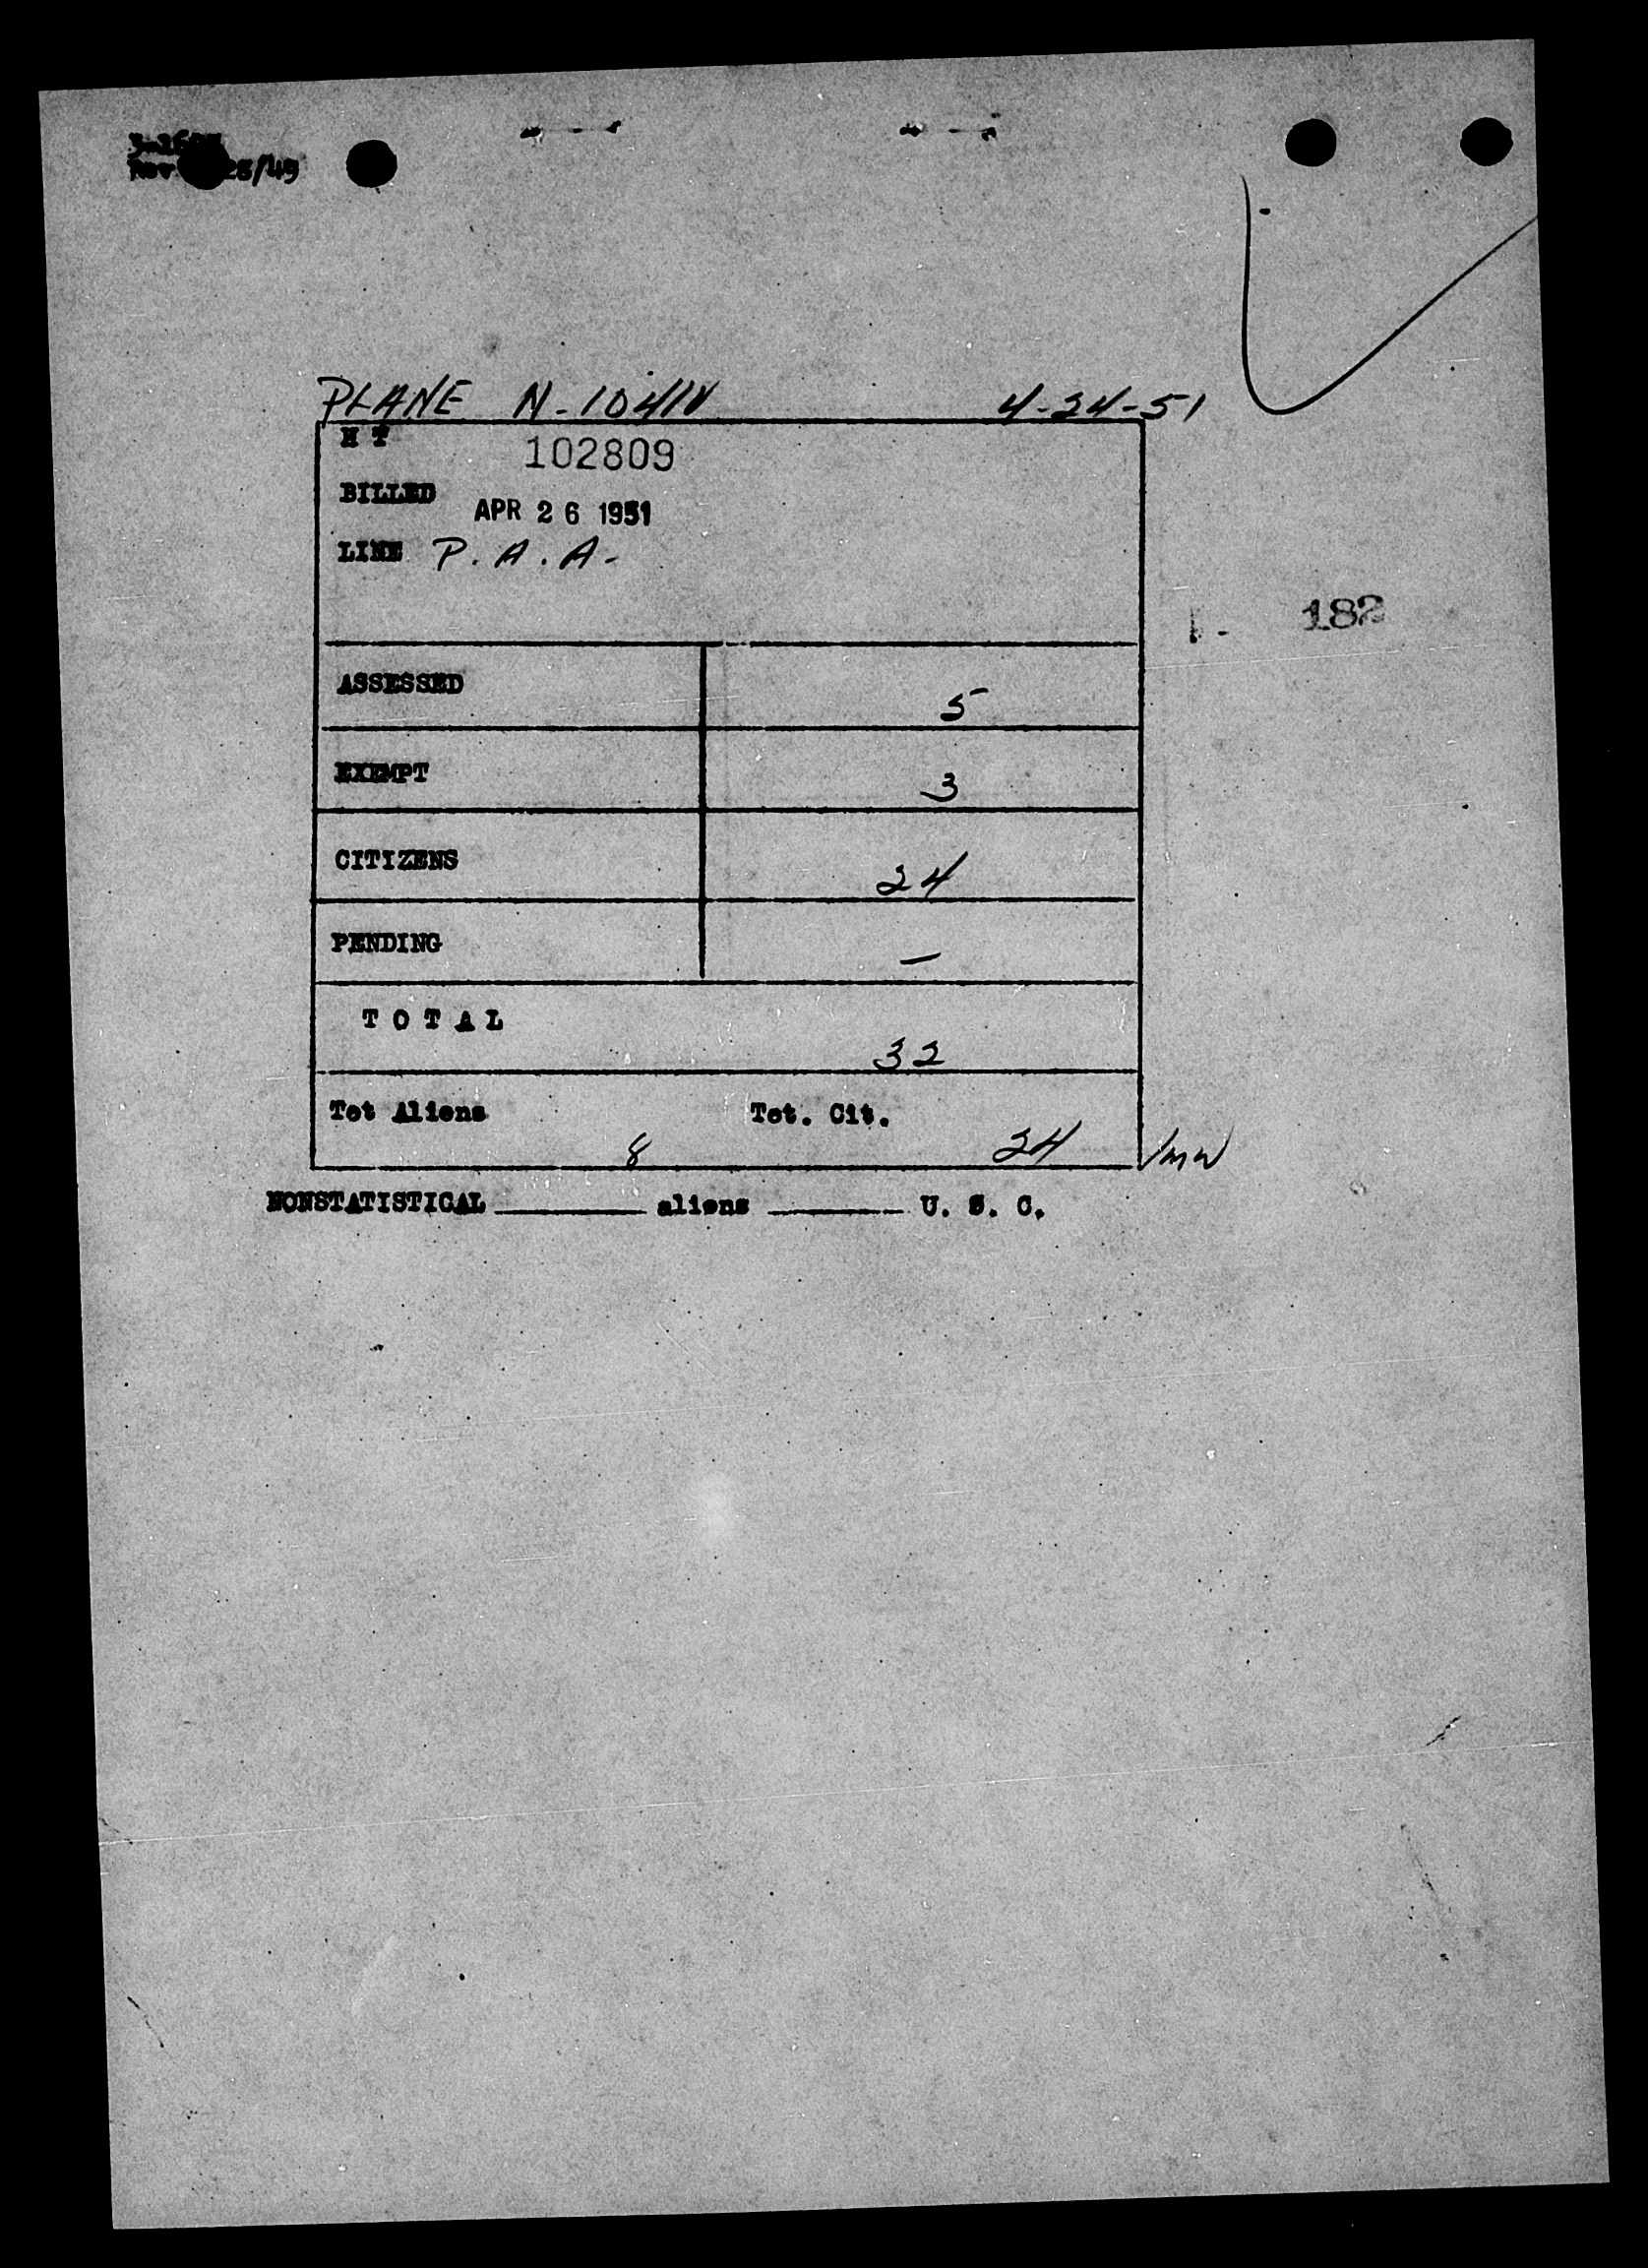 /49
PLANE N-1041V 4-24-51
H T 102809
BILLED APR 26 1951
LINE P.A.A.
182
ASSESSED 5
EXEMPT 3
CITIZENS 24
PENDING —
TOTAL 32
Tot Aliens 8 Tot. Cit. 24
NONSTATISTICAL ________ aliens ________ U. S. C.